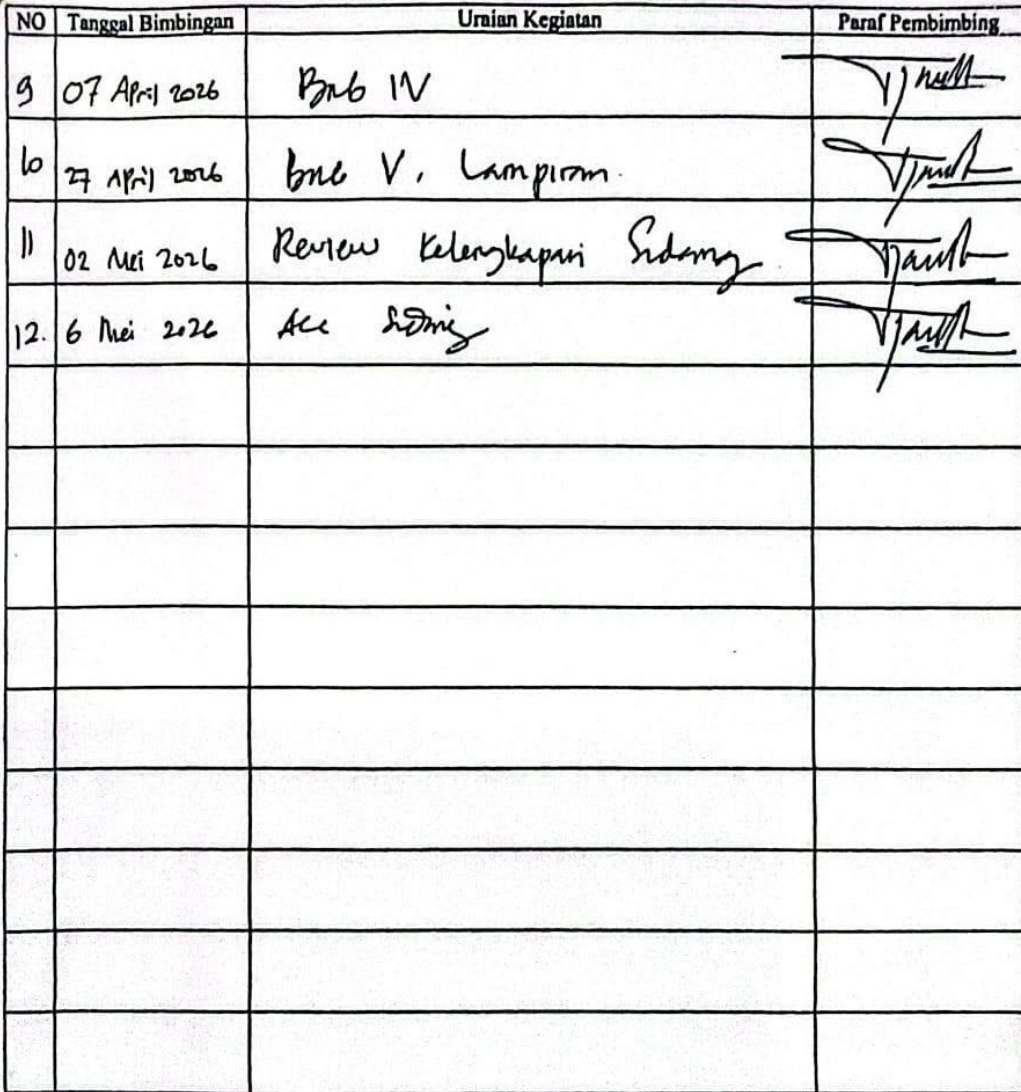 NO Tanggal Bimbingan Uraian Kegiatan Paraf Pembimbing
9 07 April 2026 Bab IV
10 27 April 2026 Bab V, Lampiran
11 02 Mei 2026 Review Kelengkapan Sidang
12. 6 Mei 2026 Acc Sidang